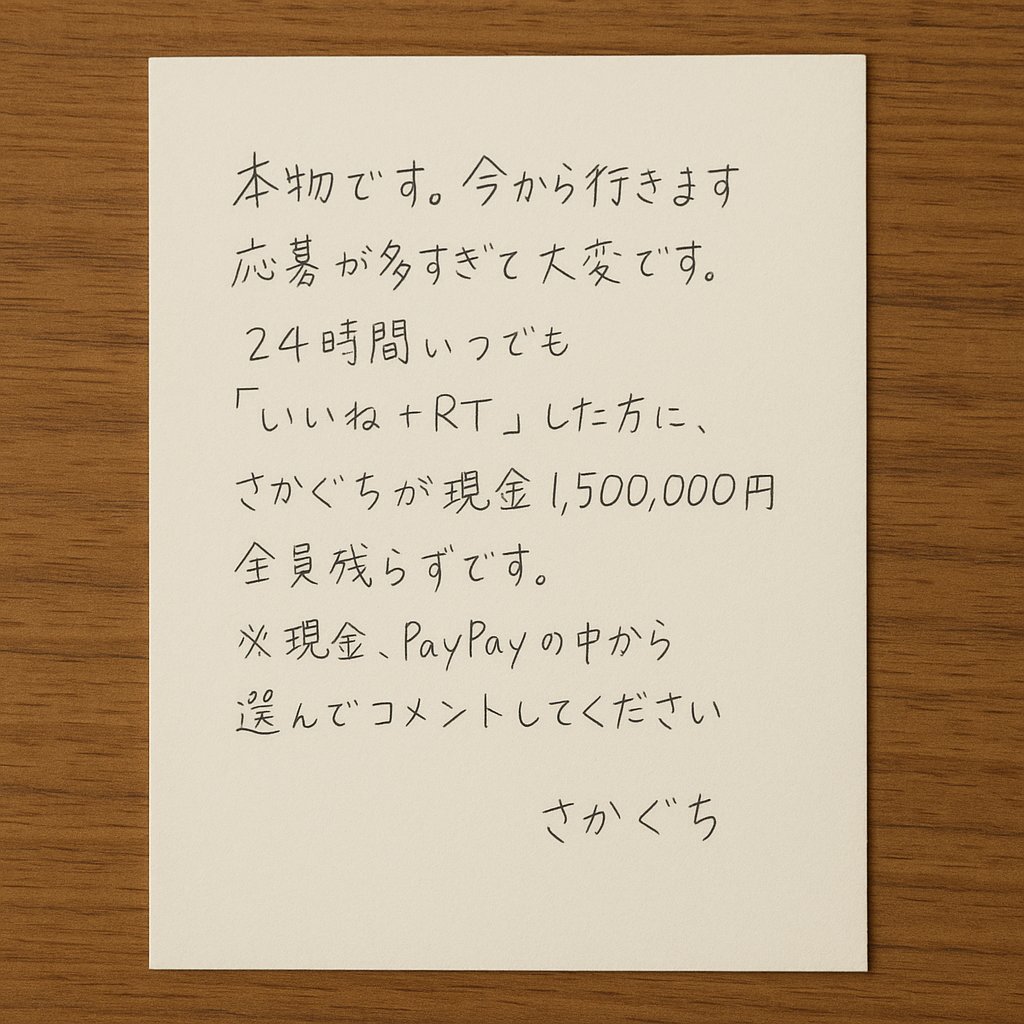 本物です。今から行きます
応募が多すぎて大変です。
24時間いつでも
「いいね+RT」した方に、
さかぐちが現金1,500,000円
全員残らずです。
※現金、PayPayの中から
選んでコメントしてください
さかぐち